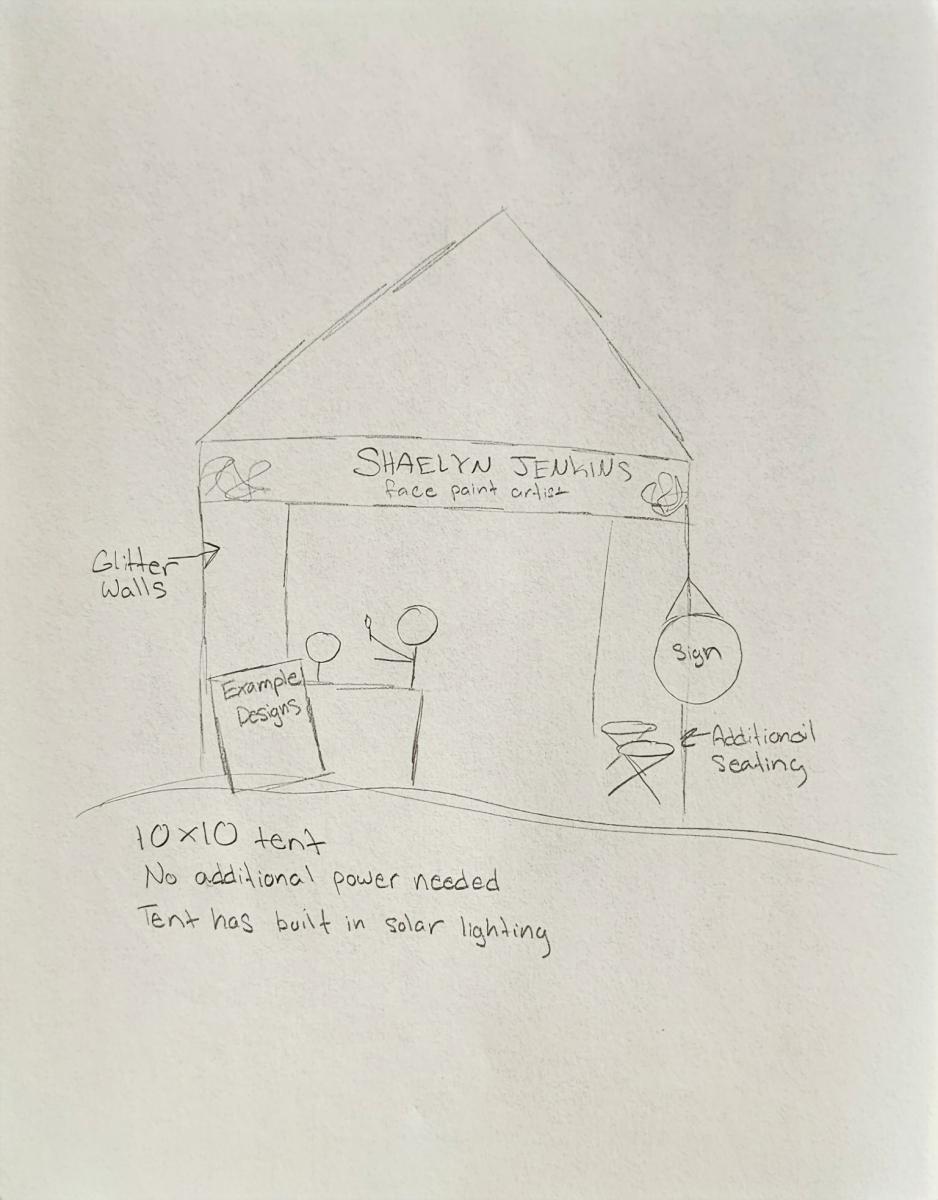 SHAELYN JENKINS
face paint artist
Glitter
Walls
Sign
Example
Designs
Additional
Seating
10x10 tent
No additional power needed
Tent has built in solar lighting